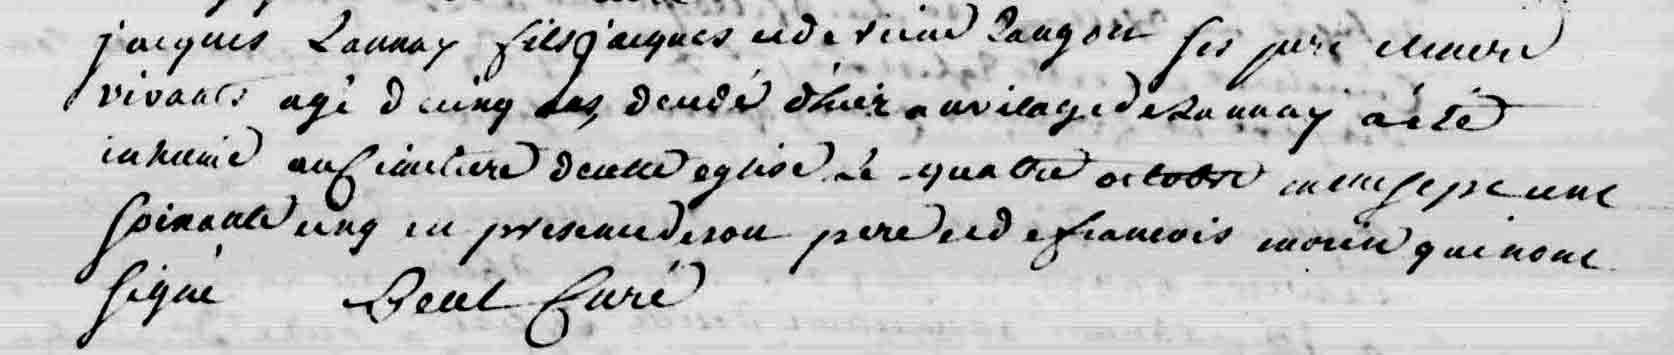 jacques Launay fils jacques et de renée Langou ses pere et mere
vivants agé d cinq ans, decedé d'hier au vilage de Launay a été
inhumé au cimitiere de cette eglise Le quatre octobre mil sept cent
soixante cinq en presence de son pere et de francois morin qui nont
signé curé